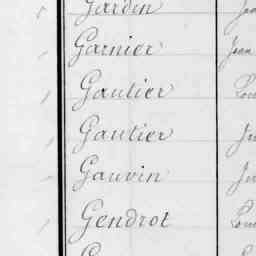 Jardin
Garnier Jean
Gautier Lou
Gautier
Gauvin
Gendrot Lou